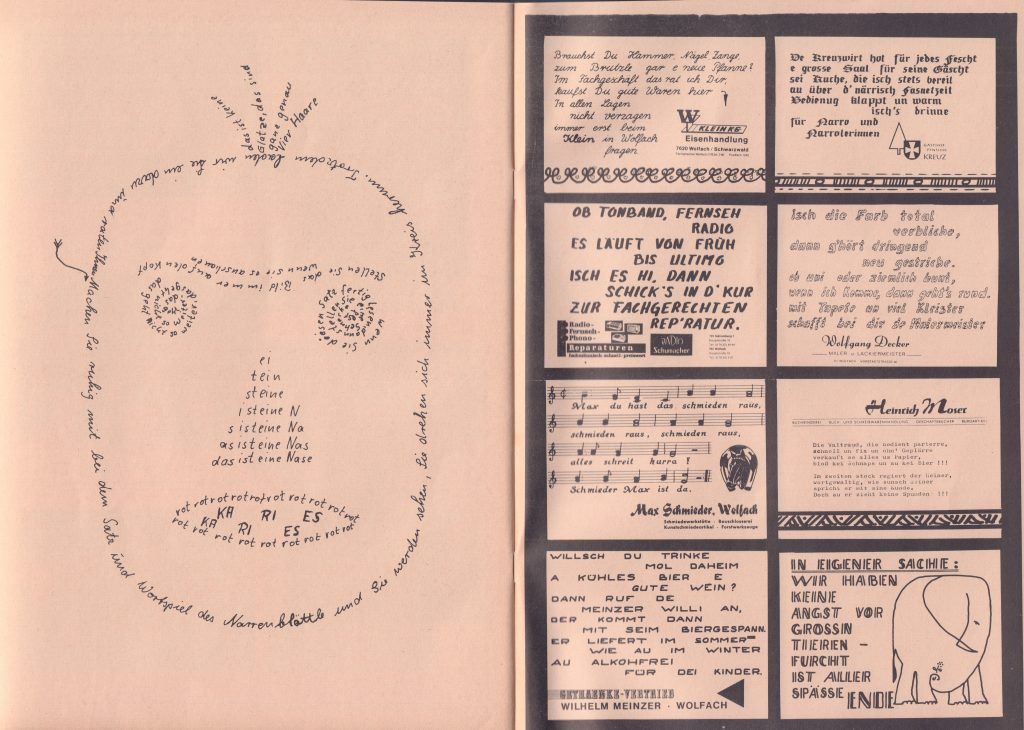 das ist keine
Glatze, das sind
ganz genau
vier Haare
Machen Sie ruhig mit bei dem Satz und Wortspiel des Narrenblättle und Sie werden sehen, Sie drehen sich immer im Kreis herum. Trotzdem laden wir Sie ein dazu
Stellen Sie das Bild immer auf den Kopf
wenn sie es anschauen
wenn Sie diesen Satz fertig
ei
tein
steine
isteine N
sisteine Na
asisteine Nas
dasisteine Nase
rot rot rot rot rot rot rot rot rot
KA RI ES
KA RI ES
rot rot rot rot rot rot rot rot rot
Brauchst Du Hammer, Nägel Zange,
zum Brutzle gar e neue Pfanne?
Im Fachgeschäft das rat ich Dir,
kaufst Du gute Waren hier
In allen Lagen
nicht verzagen
immer erst beim
Klein in Wolfach
fragen
W KLEIN KG
Eisenhandlung
7620 Wolfach / Schwarzwald
De Kreuzwirt hot für jedes Fescht
e grosse Saal für seine Gäscht
sei Kuche, die isch stets bereit
au über d' närrisch Fasnetzeit
Bedienug klappt un warm
isch's drinne
für Narro und
Narroterinnen
GASTHOF
PENSION
KREUZ
OB TONBAND, FERNSEH
RADIO
ES LÄUFT VON FRÜH
BIS ULTIMO
ISCH ES HI, DANN
SCHICK'S IN D' KUR
ZUR FACHGERECHTEN
REP'RATUR.
Radio-
Fernseh-
Phono-
Reparaturen
RADIO
Schumacher
Isch die Farb total
verbliche,
dann g'hört dringend
neu gestriche.
ob uni oder ziemlich bunt,
wenn ich komme, dann geht's rund.
mit Tapete un viel Kleister
schafft bei die de Malermeister
Wolfgang Decker
MALER u. LACKIERMEISTER
Max du hast das schmieden raus,
schmieden raus, schmieden raus,
alles schreit hurra !
Schmieder Max ist da.
Max Schmieder, Wolfach
Schmiedewerkstätte · Bauschlosserei
Kunstschmiedeartikel · Forstwerkzeuge
Heinrich Moser
BUCHBINDEREI BUCH- UND SCHREIBWARENHANDLUNG GESCHÄFTSBÜCHER BURGARTEL
Die Valtraud, die bedient parterre,
schnell un fix un ohne Geplärre
verkauft se alles us Papier,
bloß kei Schnaps un au kei Bier !!!
Im zweiten Stock regiert der Heiner,
wortgewaltig, wie sunsch keiner
spricht er mit eine Kunde.
Doch au er zieht keine Spunden !!!
WILLSCH DU TRINKE
MOL DAHEIM
A KÜHLES BIER E
GUTE WEIN?
DANN RUF DE
MEINZER WILLI AN,
DER KOMMT DANN
MIT SEIM BIERGESPANN.
ER LIEFERT IM SOMMER
WIE AU IM WINTER
AU ALKOHFREI
FÜR DEI KINDER.
GETRAENKE-VERTRIEB
WILHELM MEINZER · WOLFACH
IN EIGENER SACHE:
WIR HABEN
KEINE
ANGST VOR
GROSSIN
TIEREN -
FURCHT
IST ALLER
SPÄSSE ENDE